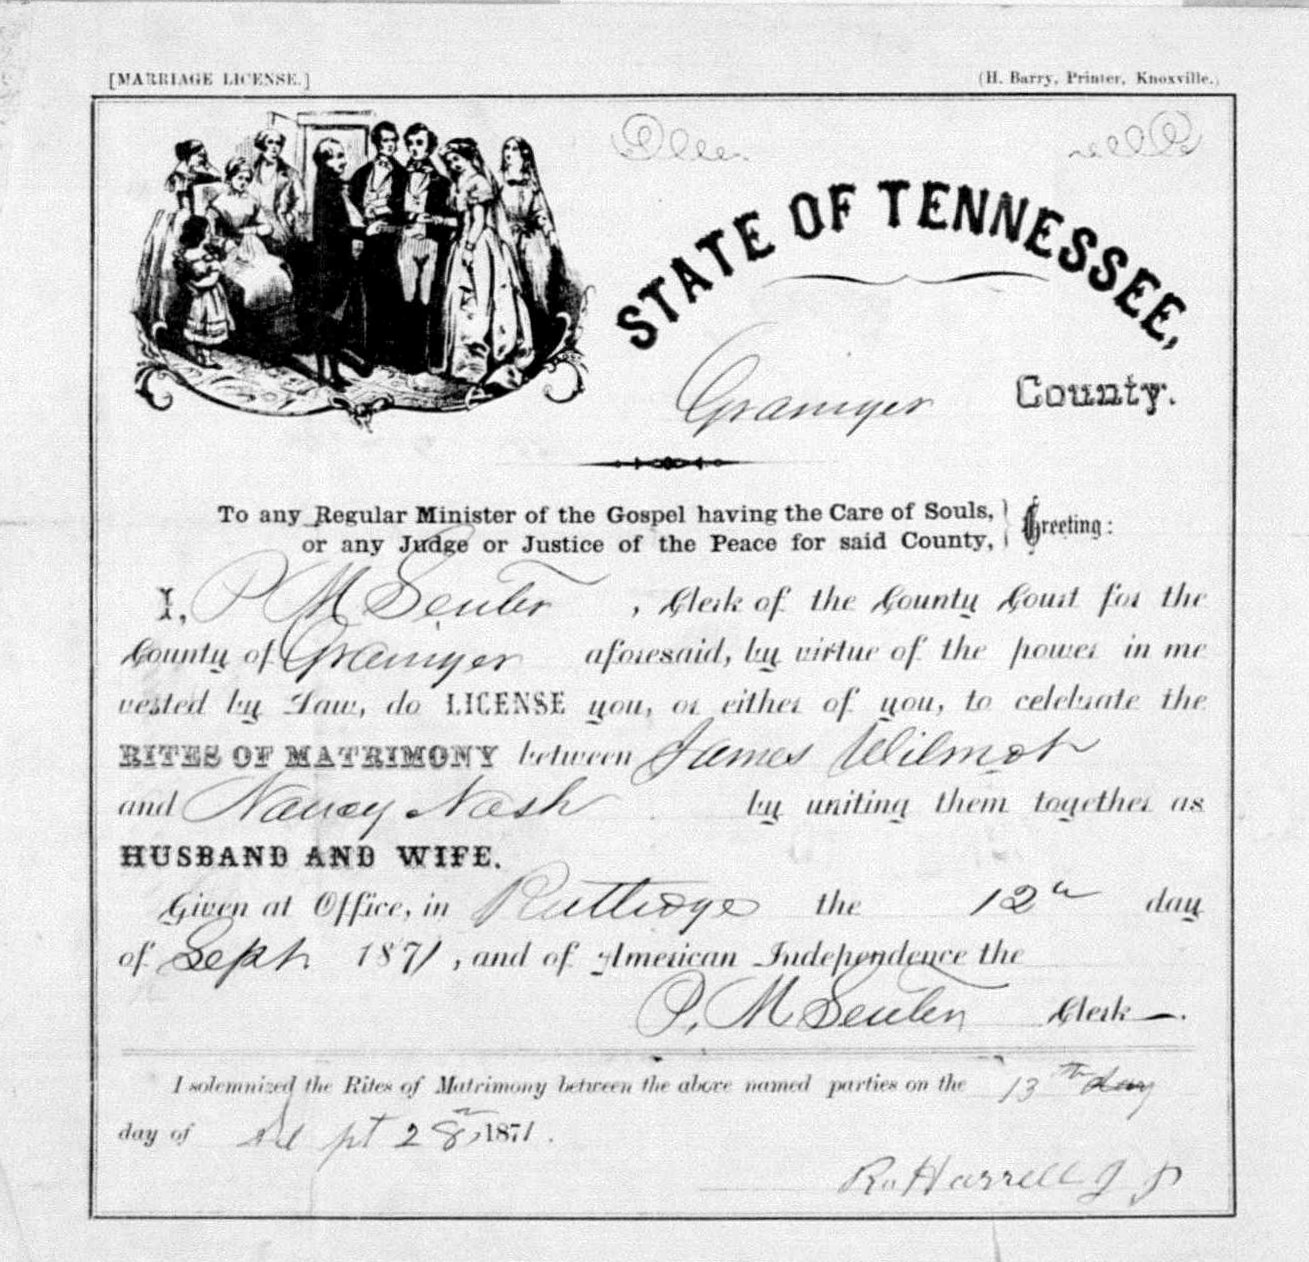 [MARRIAGE LICENSE.]
(H. Barry, Printer, Knoxville.)
STATE OF TENNESSEE,
Grainger County.
To any Regular Minister of the Gospel having the Care of Souls,
or any Judge or Justice of the Peace for said County, } Greeting:
I, P M Senter, Clerk of the County Court for the
County of Grainger aforesaid, by virtue of the power in me
vested by Law, do LICENSE you, or either of you, to celebrate the
RITES OF MATRIMONY between James Wilmot
and Nancy Nash by uniting them together as
HUSBAND AND WIFE.
Given at Office, in Rutledge the 12th day
of Sept 1871, and of American Independence the
P. M Senter Clerk.
I solemnized the Rites of Matrimony between the above named parties on the 13th day
day of Sept 28, 1871.
Ro Harrell J P